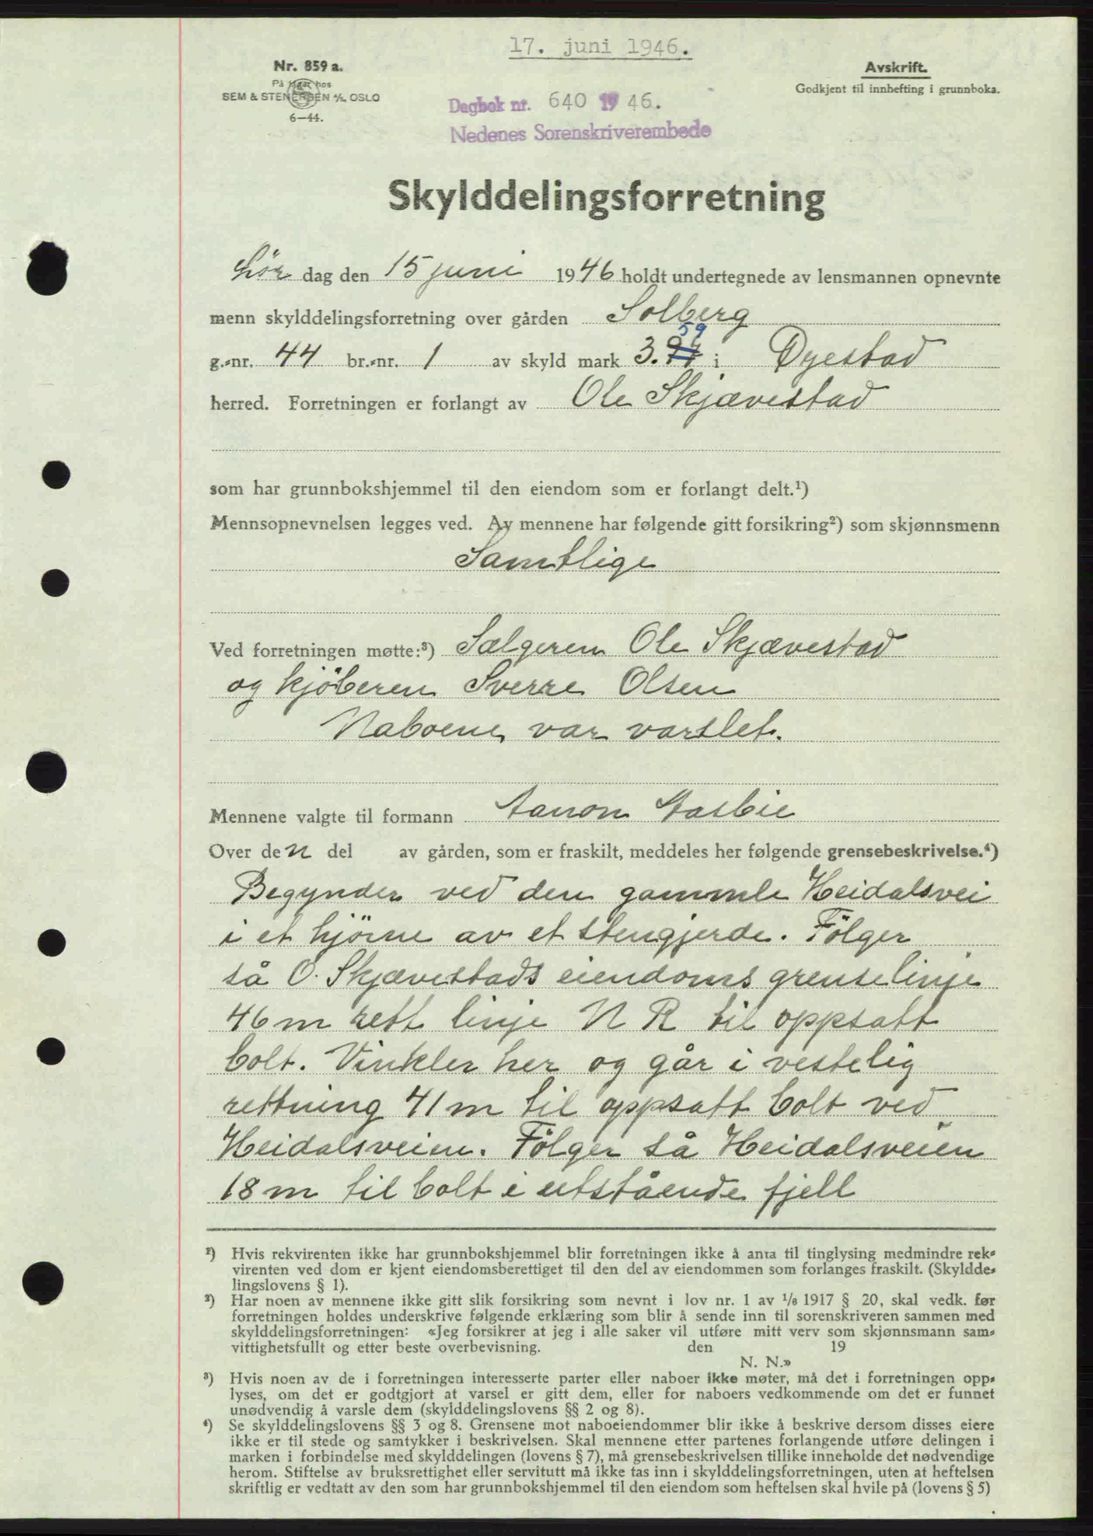 17. juni 1946.
Nr. 859 a.
På lager hos
SEM & STENERSEN A/S, OSLO
6—44.
Avskrift.
Godkjent til innhefting i grunnboka.
Dagbok nr. 640 1946.
Nedenes Sorenskriverembede
Skylddelingsforretning
Lør dag den 15 juni 1946 holdt undertegnede av lensmannen opnevnte
menn skylddelingsforretning over gården Solberg
59
g.-nr. 44 br.-nr. 1 av skyld mark 3. i Øyestad
herred. Forretningen er forlangt av Ole Skjævestad
som har grunnbokshjemmel til den eiendom som er forlangt delt.¹)
Mennsopnevnelsen legges ved. Av mennene har følgende gitt forsikring²) som skjønnsmenn
Samtlige
Ved forretningen møtte:³) Sælgeren Ole Skjævestad
og kjöberen Sverre Olsen
Naboene var varslet.
Mennene valgte til formann Aanon
Over den del av gården, som er fraskilt, meddeles her følgende grensebeskrivelse.⁴)
Begynder ved den gammle Heidalsvei
i et hjörne av et stengjerde. Fölger
så O. Skjævestads eiendoms grenselinje
46 m rett linje N R til oppsatt
bolt. Vinkler her og går i vestelig
rettning 41 m til oppsatt bolt ved
Heidalsveien. Fölger så Heidalsveien
18 m til bolt i utstående fjell
¹) Hvis rekvirenten ikke har grunnbokshjemmel blir forretningen ikke å anta til tinglysing medmindre rek-
virenten ved dom er kjent eiendomsberettiget til den del av eiendommen som forlanges fraskilt. (Skyldde-
lingslovens § 1).
²) Har noen av mennene ikke gitt slik forsikring som nevnt i lov nr. 1 av 1/6 1917 § 20, skal vedk. før
forretningen holdes underskrive følgende erklæring som blir å sende inn til sorenskriveren sammen med
skylddelingsforretningen: «Jeg forsikrer at jeg i alle saker vil utføre mitt verv som skjønnsmann sam-
vittighetsfullt og etter beste overbevisning. den 19
N. N.»
³) Hvis noen av de i forretningen interesserte parter eller naboer ikke møter, må det i forretningen opp-
lyses, om det er godtgjort at varsel er gitt dem, eller for naboers vedkommende om det er funnet
unødvendig å varsle dem (skylddelingslovens §§ 2 og 8).
⁴) Se skylddelingslovens §§ 3 og 8. Grensene mot naboeiendommer blir ikke å beskrive dersom disses eiere
ikke er til stede og samtykker i beskrivelsen. Skal mennene etter partenes forlangende utføre delingen i
marken i forbindelse med skylddelingen (lovens § 7), må grensebeskrivelsen tillike inneholde det nødvendige
herom. Stiftelse av bruksrettighet eller servitutt må ikke tas inn i skylddelingsforretningen, uten at heftelsen
skriftlig er vedtatt av den som har grunnbokshjemmel til den eiendom som heftelsen skal hvile på (lovens § 5)